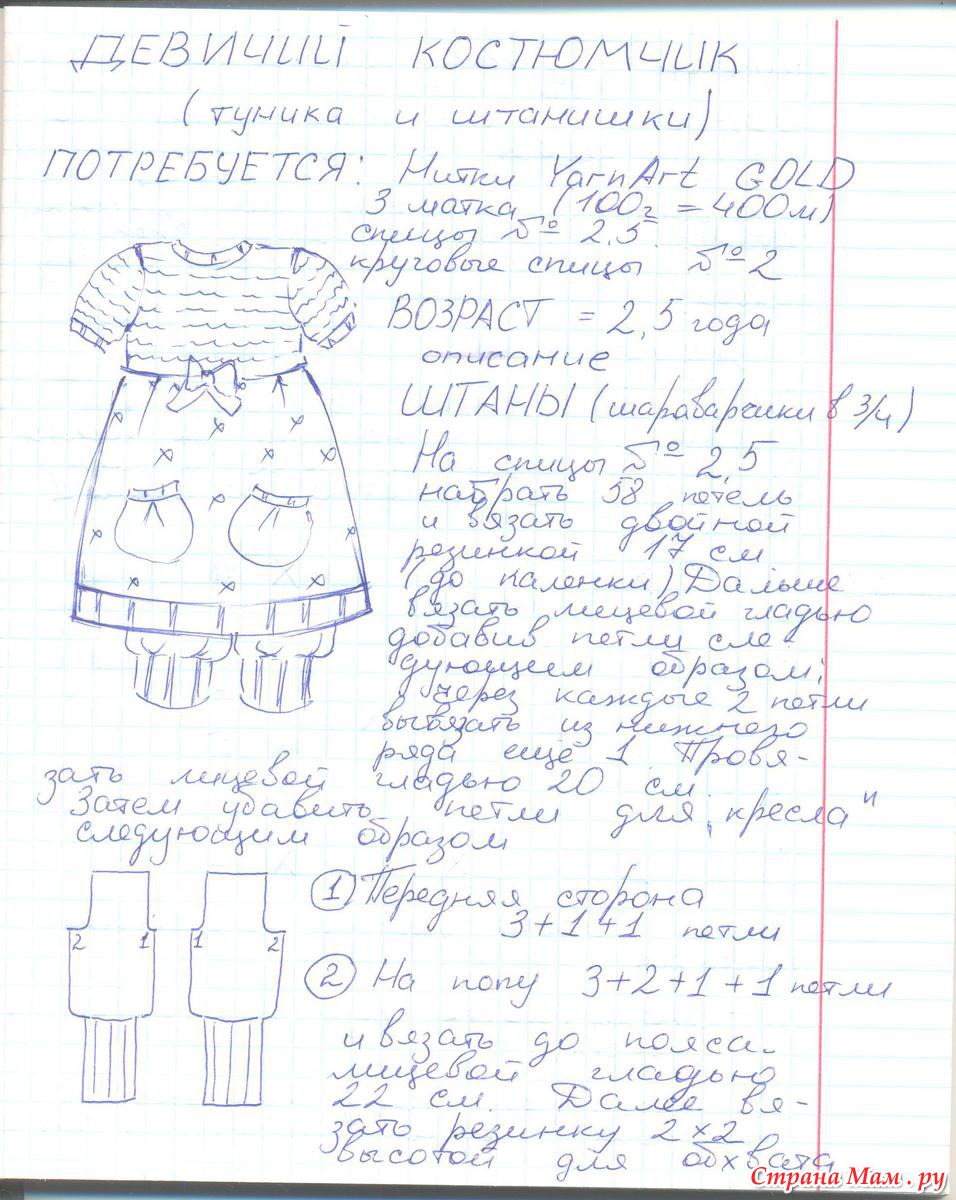 ДЕВИЧИЙ КОСТЮМЧИК
(туника и штанишки)
ПОТРЕБУЕТСЯ: Нитки YarnArt GOLD
3 матка (100г = 400м)
спицы № 2,5
круговые спицы № 2
ВОЗРАСТ = 2,5 года
описание
ШТАНЫ (шараварчики в 3/4)
На спицы № 2,5
набрать 58 петель
и вязать двойной
резинкой 17 см
(до каленки) Дальше
вязать лицевой гладью
добавив петли сле-
дующим образом:
через каждые 2 петли
вывязать из нижнего
ряда ещё 1. Провя-
зать лицевой гладью 20 см.
Затем убавить петли для „кресла"
следующим образом
2 1 1 2
① Передняя сторона
3+1+1 петли
② На попу 3+2+1+1 петли
и вязать до пояса
лицевой гладью
22 см. Далее вя-
зать резинку 2×2
высотой для обхвата
Страна Мам.ру